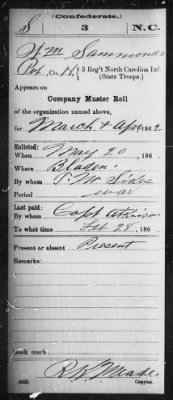 (Confederate.)
S 3 N.C.
Wm Sammons
Pvt, Co. H, 3 Reg't North Carolina Inf.
(State Troops.)
Appears on
Company Muster Roll
of the organization named above,
for March & Apr 1862
Enlisted:
When May 20, 186
Where Bladen
By whom
Period war
Last paid:
By whom Capt
To what time Feb 28, 186
Present or absent Present
Remarks:
Book mark:
(642) Copyist.